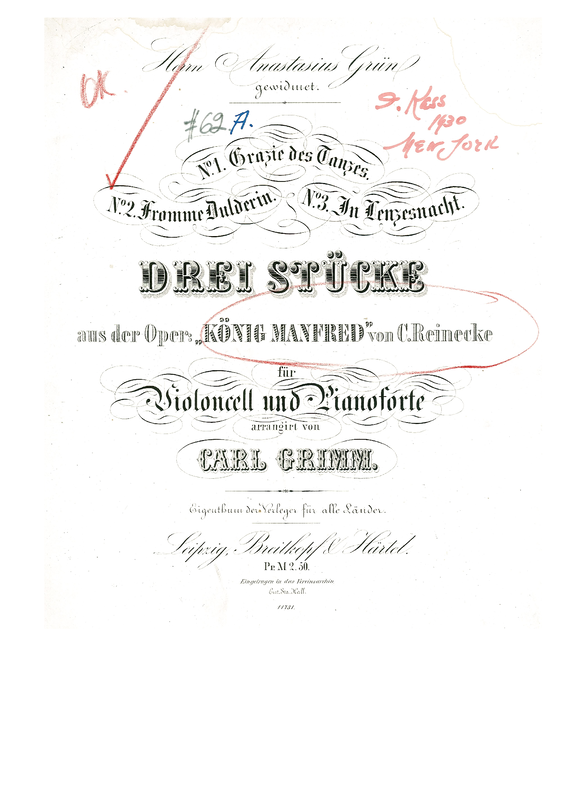 Herrn Anastasius Grün
gewidmet.
OK.
J. Kess
1430
New York
#62 A.
No. 1. Grazie des Tanzes.
No. 2. Fromme Dulderin.
No. 3. In Lenzesnacht.
DREI STÜCKE
aus der Oper: „KÖNIG MANFRED” von C. Reinecke
für
Violoncell und Pianoforte
arrangirt von
CARL GRIMM.
Eigenthum der Verleger für alle Länder.
Leipzig, Breitkopf & Härtel.
Pr. M 2. 50.
Eingetragen in das Vereinsarchiv.